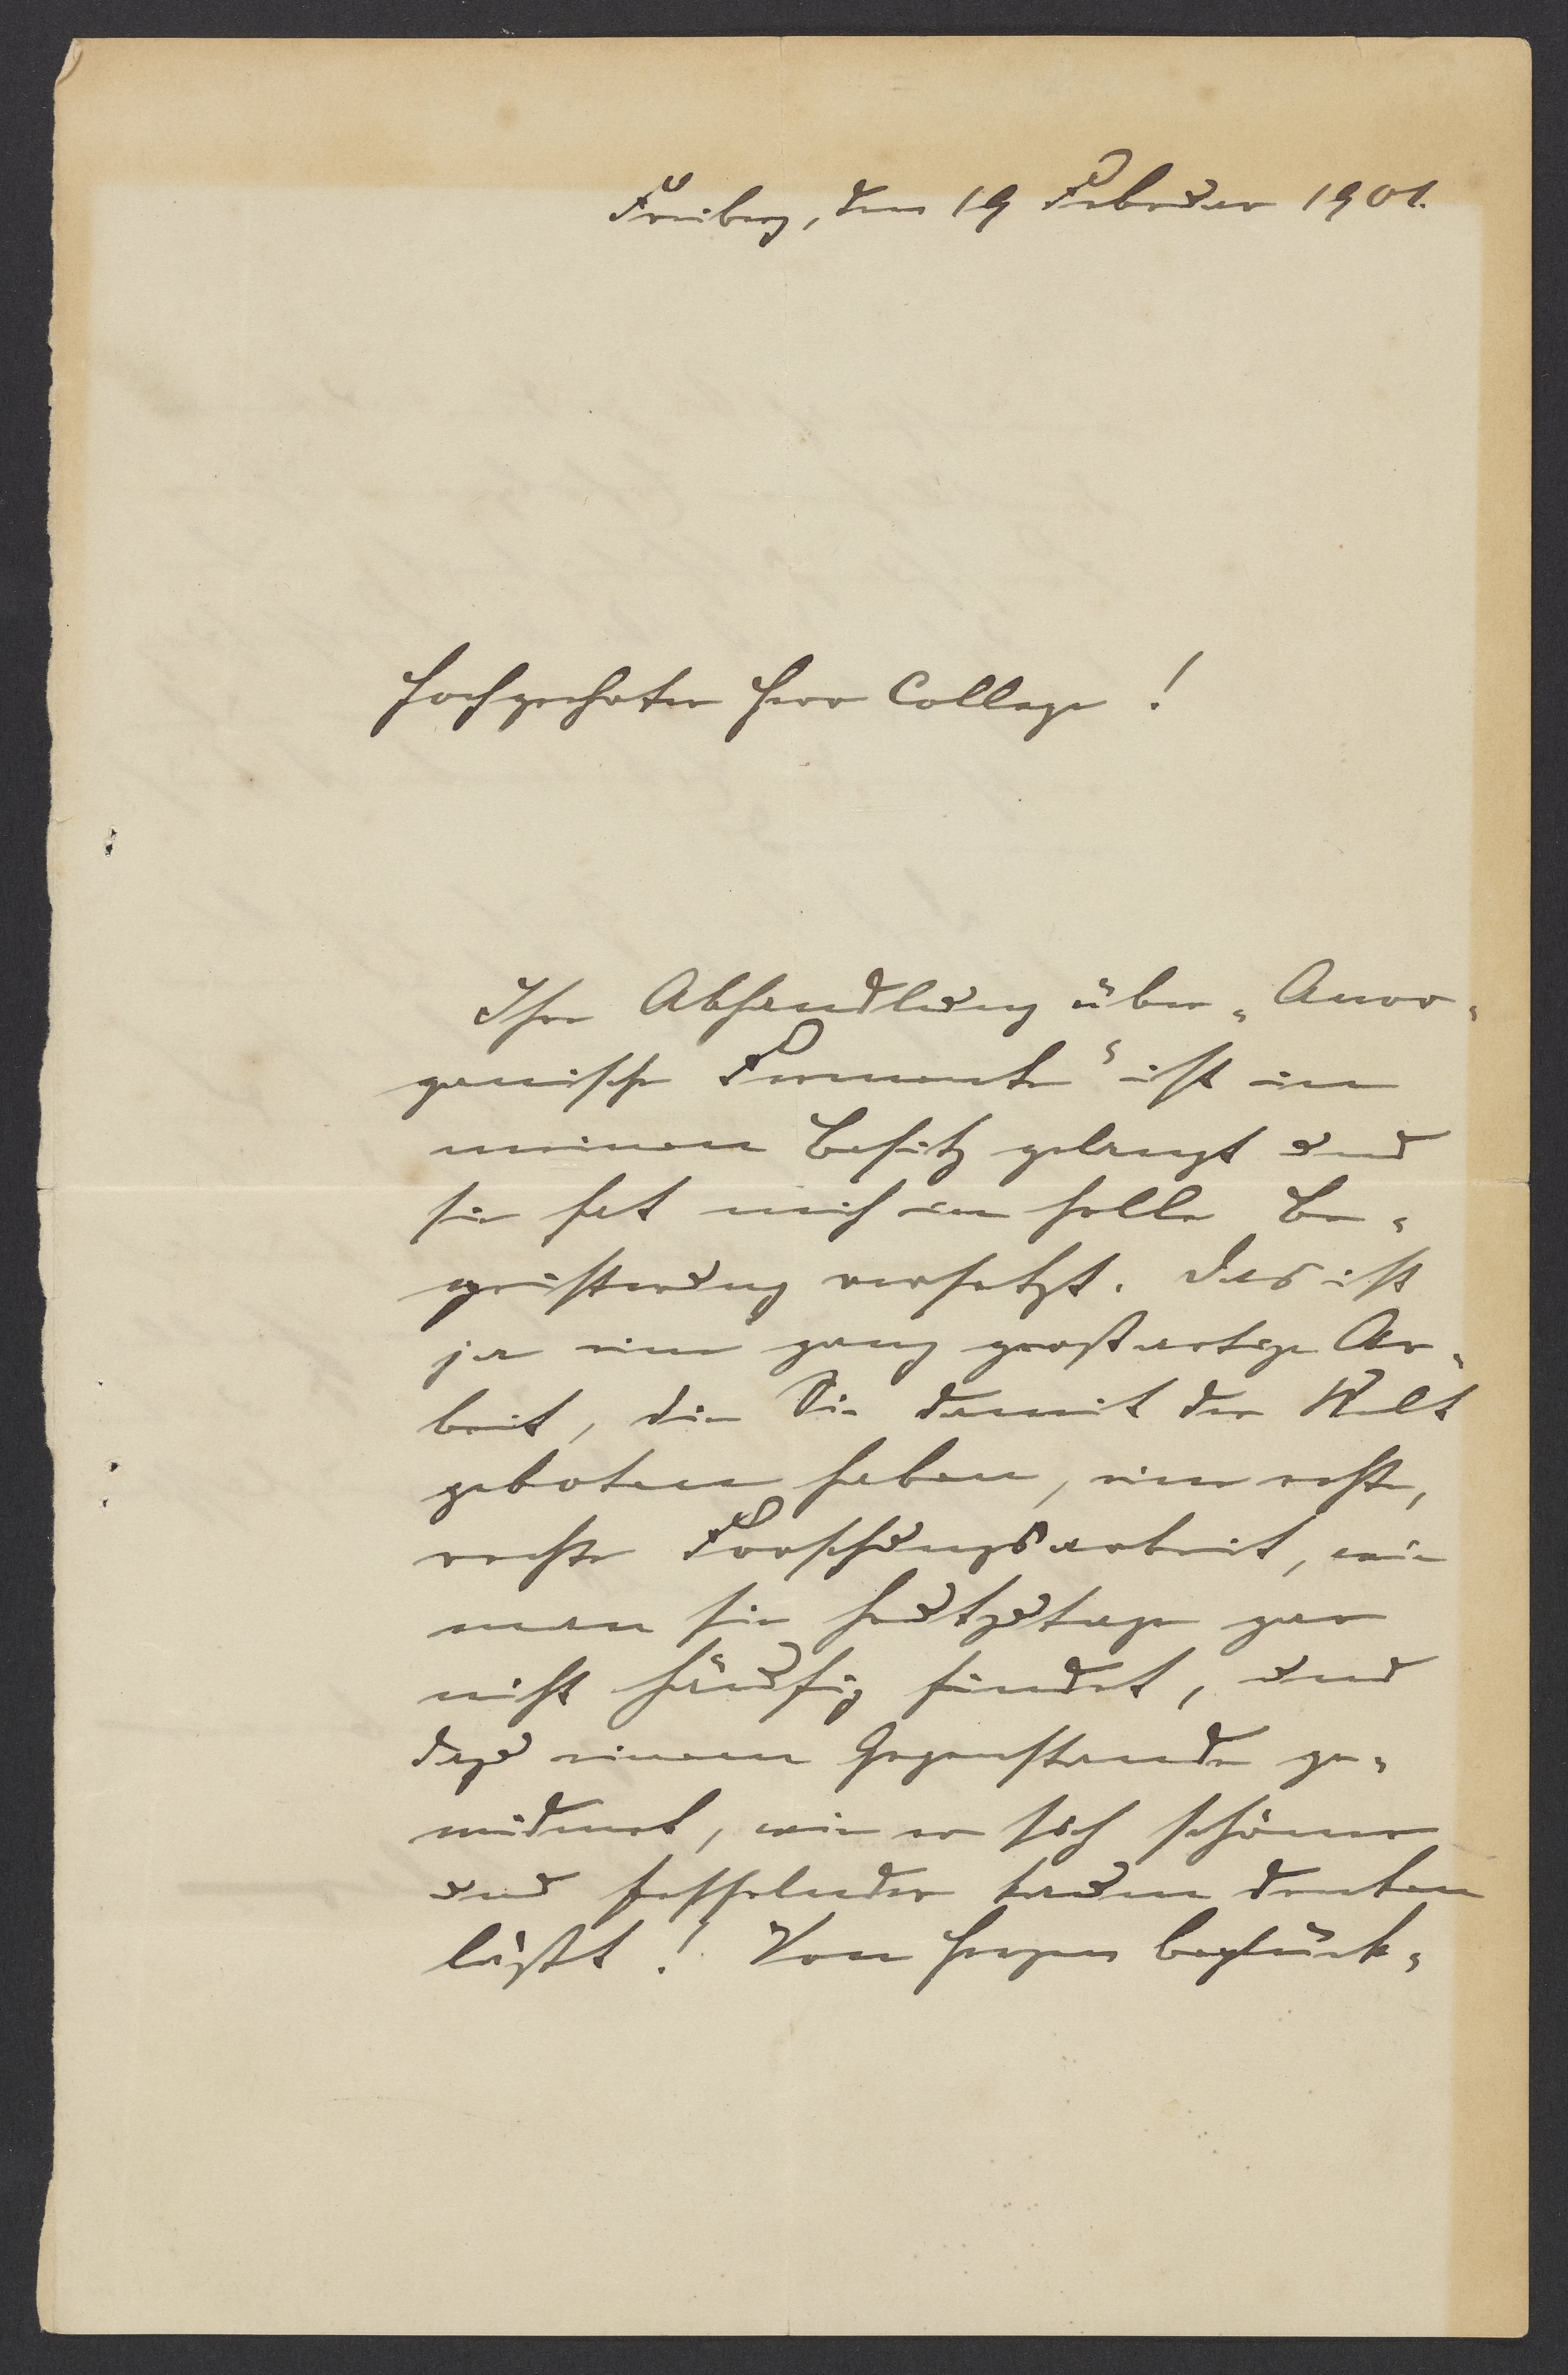 Freiberg, den 19 Februar 1901.
Hochgeehrter Herr College!
Ihre Abhandlung über „Anor-
ganische Fermente“ ist in
meinen Besitz gelangt und
sie hat mich in helle Be-
geisterung versetzt. Das ist
ja eine ganz großartige Ar-
beit, die Sie damit der Welt
geboten haben, eine echte,
rechte Forschungsarbeit, wie
man sie heutzutage gar
nicht häufig findet, und
dazu einem Gegenstande ge-
widmet, wie er sich schöner
und fesselnder kaum denken
läßt! Von Herzen beglück-